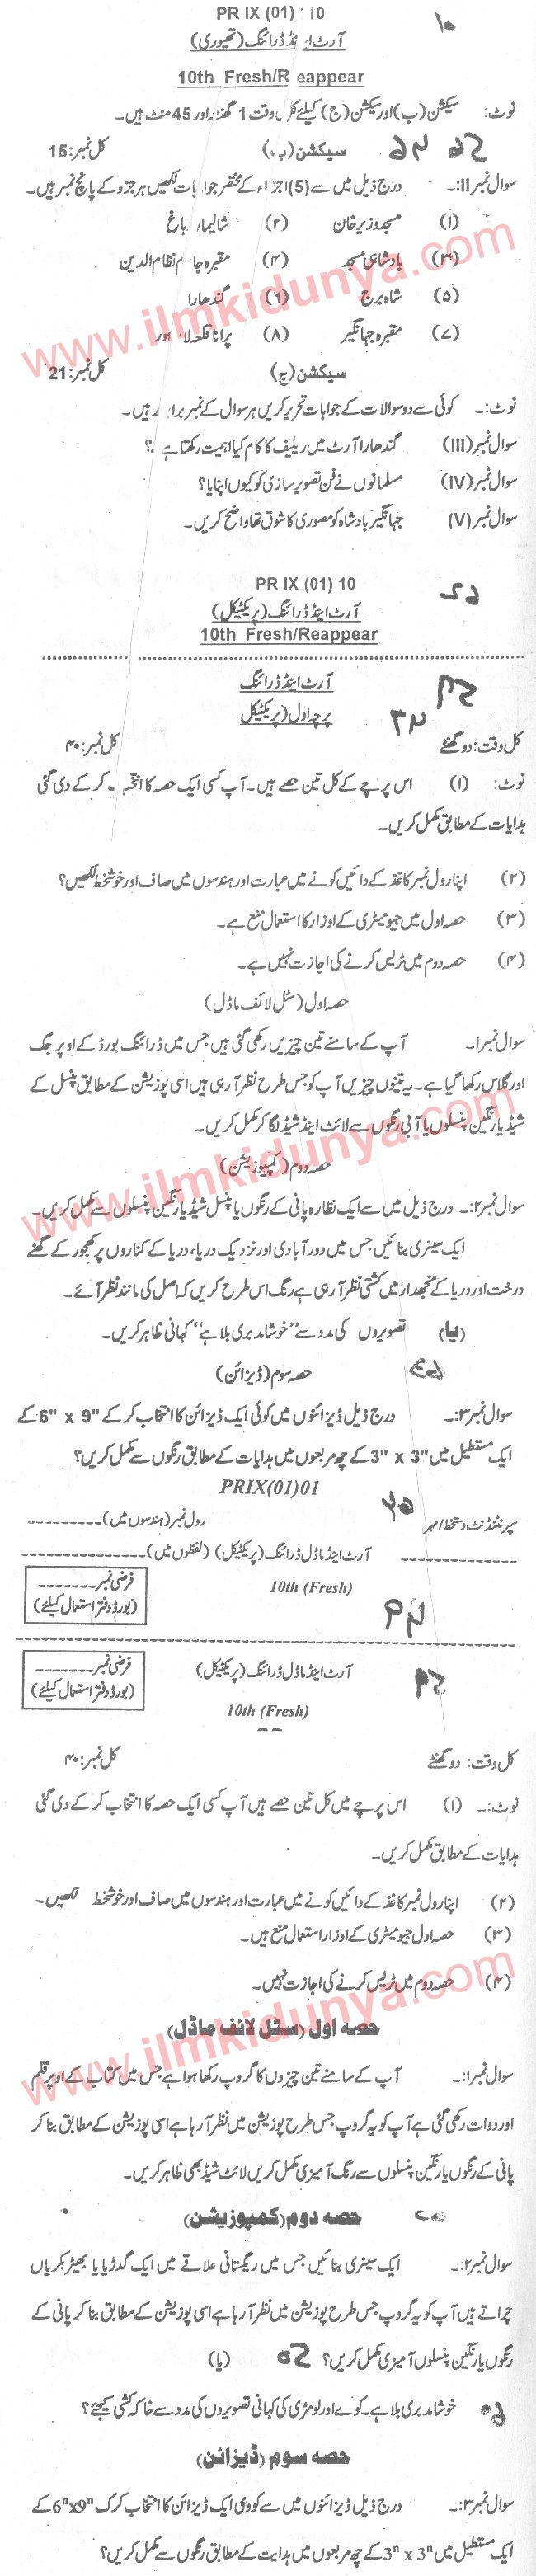 PR IX (01) 10
آرٹ اینڈ ڈرائنگ (تھیوری)
10th Fresh/Reappear
نوٹ: سیکشن (ب) اور سیکشن (ج) کیلئے کل وقت 1 گھنٹہ اور 45 منٹ ہیں۔
سیکشن (ب) کل نمبر: 15
سوال نمبر II:۔ درج ذیل میں سے (5) اجزاء کے مختصر جوابات لکھیں ہر جزو کے پانچ نمبر ہیں۔
(۱) مسجد وزیر خان (۲) شالیمار باغ
(۳) بادشاہی مسجد (۴) مقبرہ جام نظام الدین
(۵) شاہ برج (۶) گندھارا
(۷) مقبرہ جہانگیر (۸) پرانا قلعہ لاہور
سیکشن (ج) کل نمبر: 21
نوٹ:۔ کوئی سے دو سوالات کے جوابات تحریر کریں ہر سوال کے نمبر برابر ہیں۔
سوال نمبر (III) گندھارا آرٹ میں ریلیف کا کام کیا اہمیت رکھتا ہے؟
سوال نمبر (IV) مسلمانوں نے فن تصویر سازی کو کیوں اپنایا؟
سوال نمبر (V) جہانگیر بادشاہ کو مصوری کا شوق تھا واضح کریں۔
PR IX (01) 10
آرٹ اینڈ ڈرائنگ (پریکٹیکل)
10th Fresh/Reappear
آرٹ اینڈ ڈرائنگ
پرچہ اول (پریکٹیکل)
کل وقت: دو گھنٹے کل نمبر: ۴۰
نوٹ: (۱) اس پرچے کے کل تین حصے ہیں۔ آپ کسی ایک حصہ کا انتخاب کر کے دی گئی
ہدایات کے مطابق مکمل کریں۔
(۲) اپنا رول نمبر کاغذ کے دائیں کونے میں عبارت اور ہندسوں میں صاف اور خوشخط لکھیں؟
(۳) حصہ اول میں جیومیٹری کے اوزار کا استعمال منع ہے۔
(۴) حصہ دوم میں ٹریس کرنے کی اجازت نہیں ہے۔
حصہ اول (سٹل لائف ماڈل)
سوال نمبر ۱۔ آپ کے سامنے تین چیزیں رکھی گئی ہیں جس میں ڈرائنگ بورڈ کے اوپر جگ
اور گلاس رکھا گیا ہے۔ یہ تینوں چیزیں آپ کو جس طرح نظر آ رہی ہیں اسی پوزیشن کے مطابق پنسل کے
شیڈ یا رنگین پنسلوں یا آبی رنگوں سے لائٹ اینڈ شیڈ لگا کر مکمل کریں۔
حصہ دوم (کمپوزیشن)
سوال نمبر ۲:۔ درج ذیل میں سے ایک نظارہ پانی کے رنگوں یا پنسل شیڈ یا رنگین پنسلوں سے مکمل کریں۔
ایک سینری بنائیں جس میں دور آبادی اور نزدیک دریا، دریا کے کناروں پر کھجور کے گھنے
درخت اور دریا کے منجھدار میں کشتی نظر آ رہی ہے رنگ اس طرح کریں کہ اصل کی مانند نظر آئے۔
(یا) تصویروں کی مدد سے "خوشامد بری بلا ہے" کہانی ظاہر کریں۔
حصہ سوم (ڈیزائن)
سوال نمبر ۳:۔ درج ذیل ڈیزائنوں میں کوئی ایک ڈیزائن کا انتخاب کر کے 6" x 9" کے
ایک مستطیل میں 3" x 3" کے چھ مربعوں میں ہدایات کے مطابق رنگوں سے مکمل کریں؟
PRIX(01)01
سپرنٹنڈنٹ دستخط/مہر رول نمبر (ہندسوں میں)
آرٹ اینڈ ماڈل ڈرائنگ (پریکٹیکل) (لفظوں میں)
10th (Fresh)
فرضی نمبر
(بورڈ دفتر استعمال کیلئے)
آرٹ اینڈ ماڈل ڈرائنگ (پریکٹیکل)
10th (Fresh)
فرضی نمبر
(بورڈ دفتر استعمال کیلئے)
کل وقت: دو گھنٹے کل نمبر: ۴۰
نوٹ:۔ (۱) اس پرچے میں کل تین حصے ہیں آپ کسی ایک حصہ کا انتخاب کر کے دی گئی
ہدایات کے مطابق مکمل کریں۔
(۲) اپنا رول نمبر کاغذ کے دائیں کونے میں عبارت اور ہندسوں میں صاف اور خوشخط لکھیں۔
(۳) حصہ اول جیومیٹری کے اوزار استعمال منع ہیں۔
(۴) حصہ دوم میں ٹریس کرنے کی اجازت نہیں۔
حصہ اول (سٹل لائف ماڈل)
سوال نمبر ۱:۔ آپ کے سامنے تین چیزوں کا گروپ رکھا ہوا ہے جس میں کتاب کے اوپر قلم
اور دوات رکھی گئی ہے آپ کو یہ گروپ جس طرح پوزیشن میں نظر آ رہا ہے اسی پوزیشن کے مطابق بنا کر
پانی کے رنگوں یا رنگین پنسلوں سے رنگ آمیزی مکمل کریں لائٹ شیڈ بھی ظاہر کریں۔
حصہ دوم (کمپوزیشن)
سوال نمبر ۲:۔ ایک سینری بنائیں جس میں ریگستانی علاقے میں ایک گدڑیا یا بھیڑ بکریاں
چراتے ہیں آپ کو یہ گروپ جس طرح پوزیشن میں نظر آ رہا ہے اسی پوزیشن کے مطابق بنا کر پانی کے
رنگوں یا رنگین پنسلوں آمیزی مکمل کریں؟ (یا)
خوشامد بری بلا ہے۔ کوے اور لومڑی کی کہانی تصویروں کی مدد سے خاکہ کشی کیجئے؟
حصہ سوم (ڈیزائن)
سوال نمبر ۳:۔ درج ذیل ڈیزائنوں میں سے کوئی ایک ڈیزائن کا انتخاب کرکے 6"x9" کے
ایک مستطیل میں 3" x 3" کے چھ مربعوں میں ہدایت کے مطابق رنگوں سے مکمل کریں؟
www.ilmkidunya.com
www.ilmkidunya.com
www.ilmkidunya.com